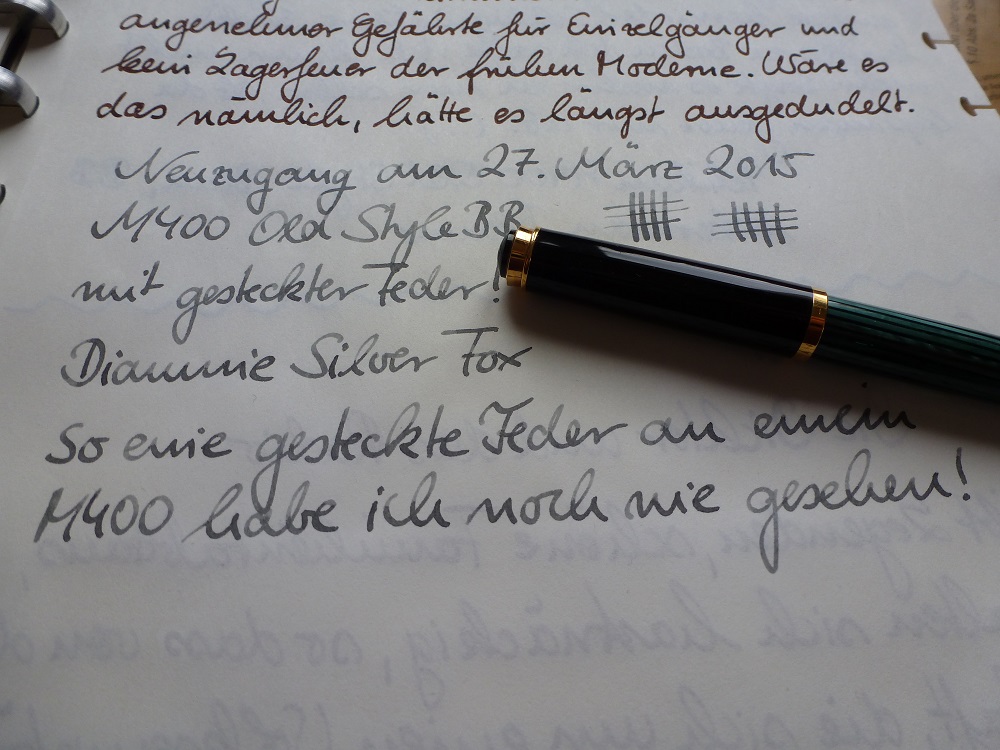 angenehmer Gefährte für Einzelgänger und
kein Lagerfeuer der frühen Moderne. Wäre es
das nämlich, hätte es längst ausgedudelt.
Neuzugang am 27. März 2015
M400 Old Style BB
mit gesteckter Feder!
Diamine Silver Fox
So eine gesteckte Feder an einem
M400 habe ich noch nie gesehen!